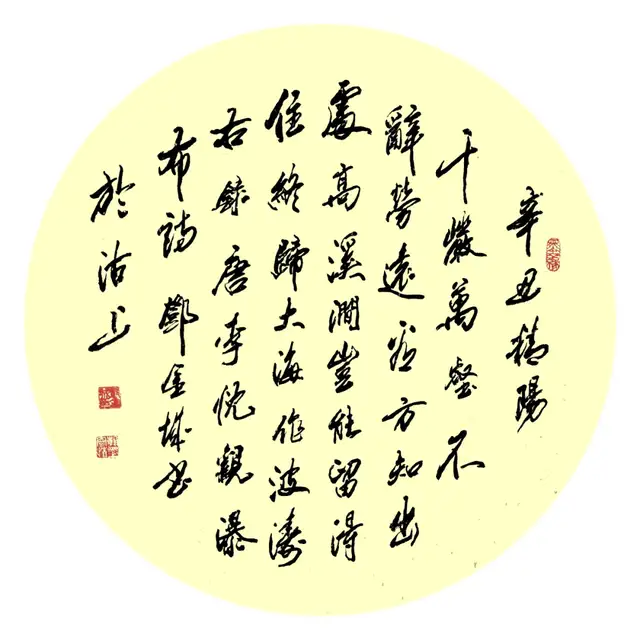 辛丑陽
千巖萬壑不
辭勞遠看方知出
處高溪澗豈能留得
住終歸大海作波濤
右錄唐李忱觀瀑
布詩鄧金城書
於沽上